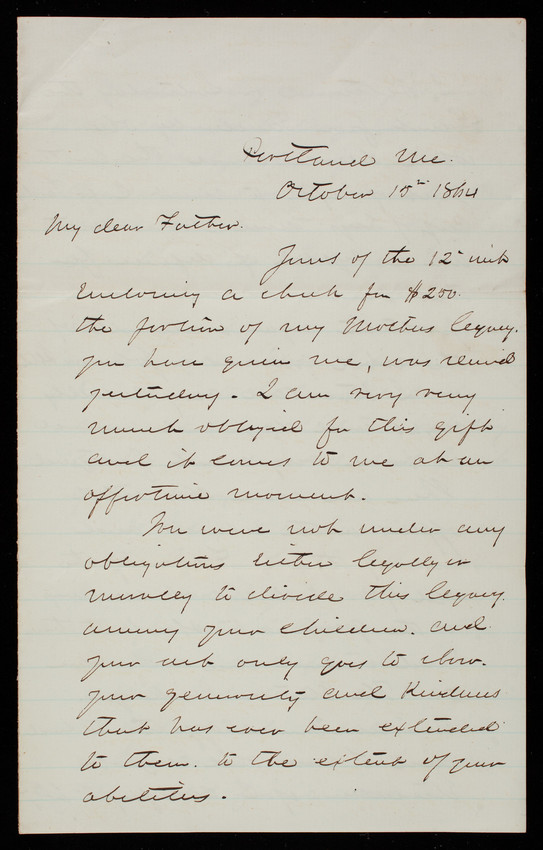 Portland Me.
October 15th 1864
My dear Father.
Yours of the 12th inst
enclosing a check for $250.
the portion of my Mothers legacy.
you have given me, was received
yesterday. I am very very
much obliged for this gift
and it comes to me at an
opportune moment.
You were not under any
obligations either legally or
morally to divide this legacy.
among your children. and
your act only goes to show.
your generosity and kindness
that has ever been extended
to them. to the extent of your
abilities.